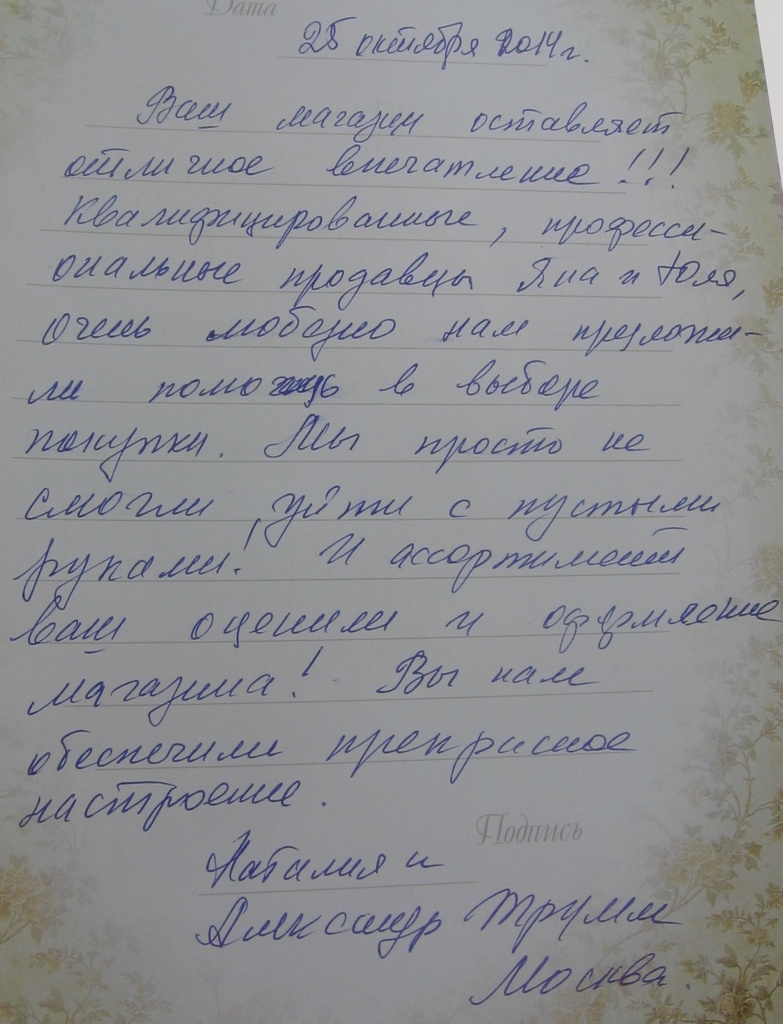 Дата
25 октября 2014г.
Ваш магазин оставляет
отличное впечатление!!!
Квалифицированные, професси-
ональные продавцы Яна и Юля,
очень любезно нам предложи-
ли помощь в выборе
покупки. Мы просто не
смогли уйти с пустыми
руками! И ассортимент
ваш оценили и оформление
магазина! Вы нам
обеспечили прекрасное
настроение.
Подпись
Наталия и
Александр Трумм
Москва.